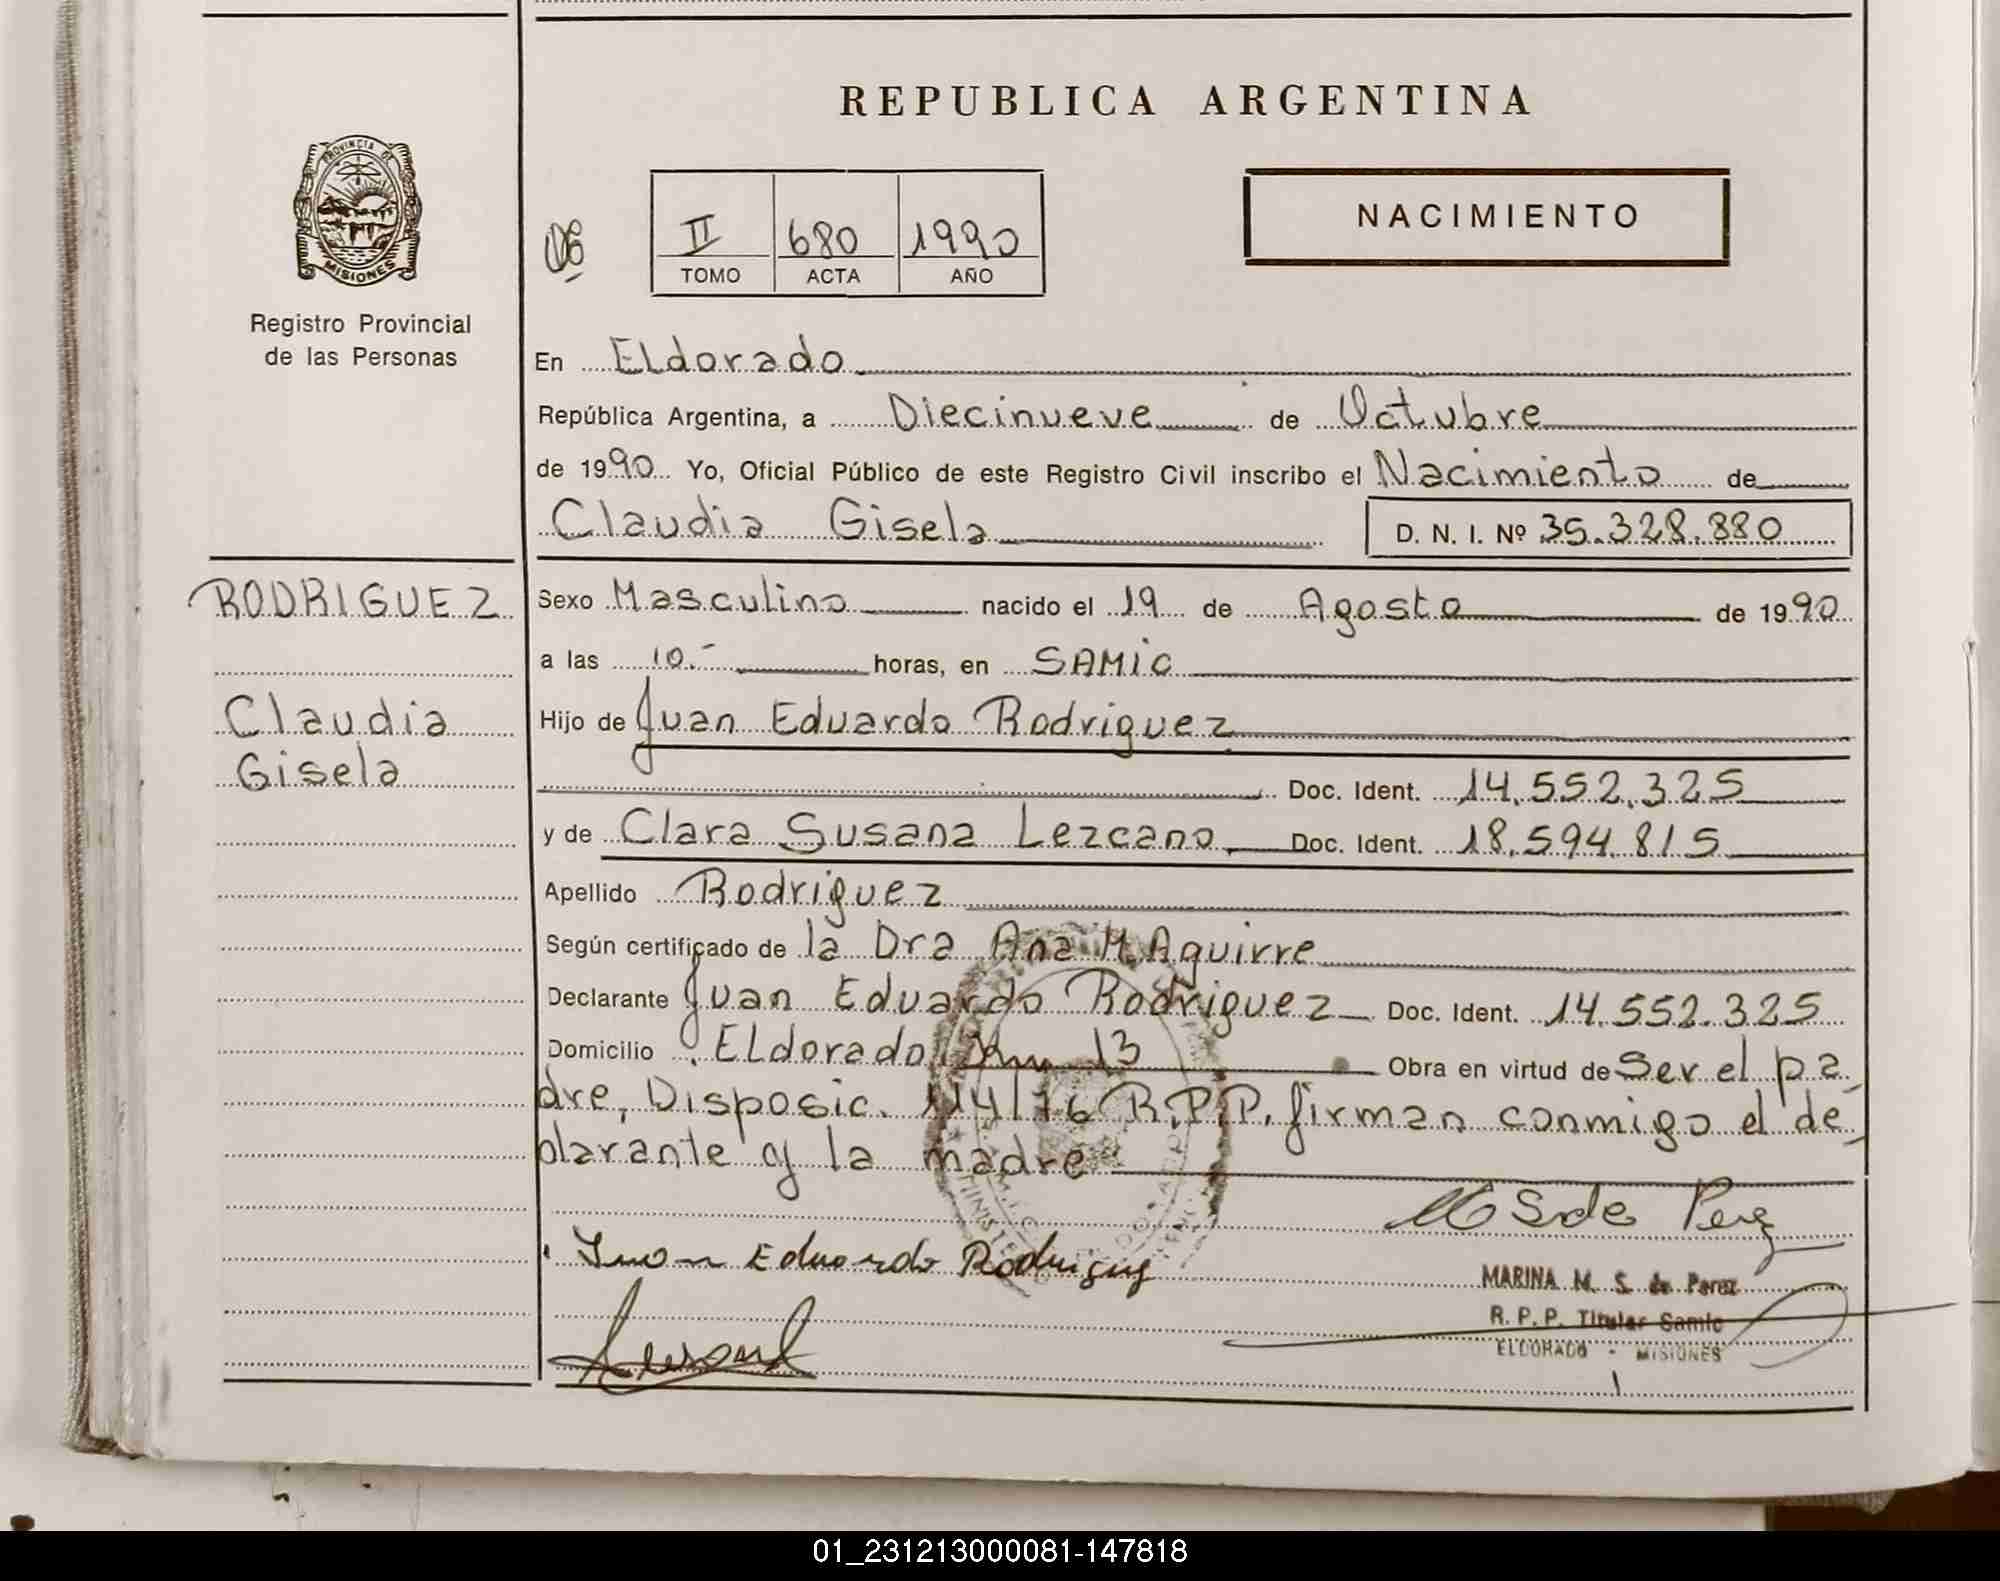 REPUBLICA ARGENTINA
PROVINCIA DE
MISIONES
Registro Provincial
de las Personas
06
II 680 1990
TOMO ACTA AÑO
NACIMIENTO
En Eldorado
República Argentina, a Diecinueve de Octubre
de 1990 Yo, Oficial Público de este Registro Civil inscribo el Nacimiento de
Claudia Gisela D. N. I. Nº 35.328.880
RODRIGUEZ
Claudia
Gisela
Sexo Masculino nacido el 19 de Agosto de 1990
a las 10.- horas, en SAMIC
Hijo de Juan Eduardo Rodriguez
Doc. Ident. 14.552.325
y de Clara Susana Lezcano Doc. Ident. 18.594.815
Apellido Rodriguez
Según certificado de la Dra Ana M. Aguirre
Declarante Juan Eduardo Rodriguez Doc. Ident. 14.552.325
Domicilio Eldorado Km 13 Obra en virtud de Ser el pa-
dre, Disposic. 114/76 R.P.P. firman conmigo el de-
clarante y la madre
M S de Perez
Juan Eduardo Rodriguez
MARINA M. S. de Perez
R. P. P. Titular Samic
ELDORADO - MISIONES
01_231213000081-147818